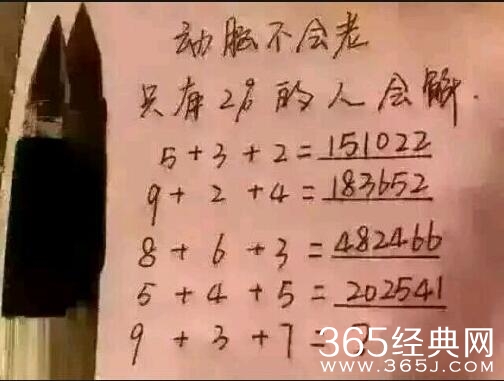 动脑不会老
只有2%的人会解.
5+3+2=151022
9+2+4=183652
8+6+3=482466
5+4+5=202541
9+3+7=?
365经典网
www.365J.COM